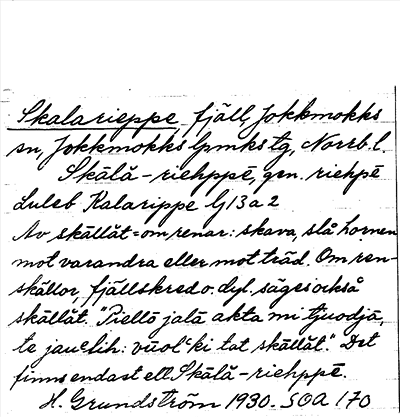 Skalarieppe, fjäll, Jokkmokks
sn, Jokkmokks lpmks tg, Norrb. l.
Skālǎ-riehppē, gen. riehpē
Luleb Kalarippe G13a2
Av skāllāt = om renar: skava, slå hornen
mot varandra eller mot träd. Om ren-
skällor, fjällskred o. dyl. säges också
skāllāt. "Piellō jalā akta mi tjuodjā,
te jau lih: vuol ki tat skāllāt". Det
finns endast ett Skālǎ-riehppē.
H. Grundström 1930. SOA 170